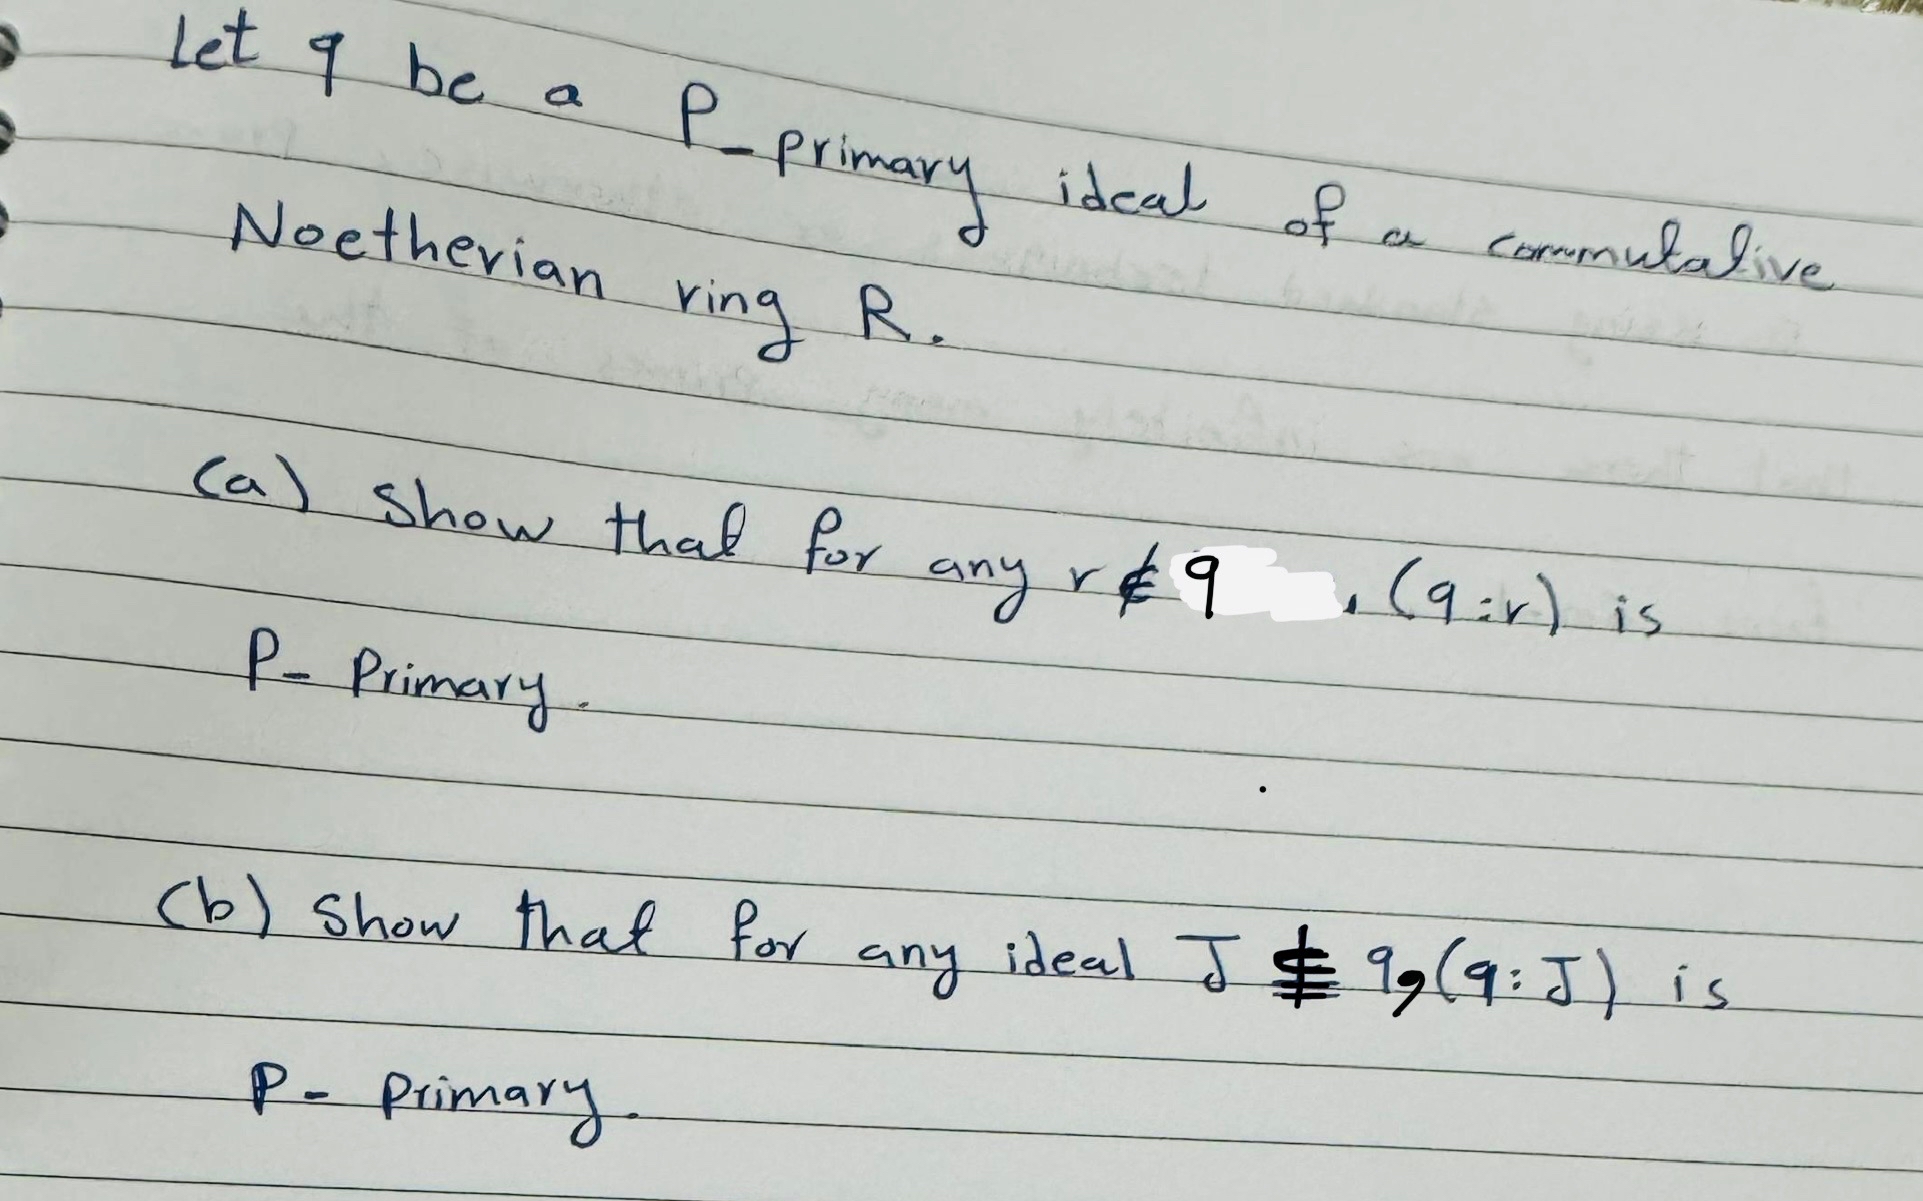 Let q be a P-primary ideal of a commutative
Noetherian ring R.
(a) Show that for any r ∉ q, (q:r) is
P-Primary.
(b) Show that for any ideal J ⊈ q, (q:J) is
P-Primary.